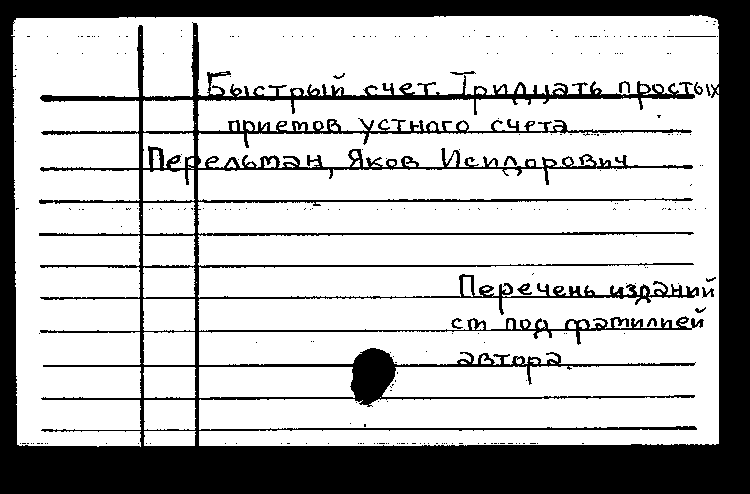 Быстрый счет. Тридцать простых
приемов устного счета
Перельман, Яков Исидорович.
Перечень изданий
см под фамилией
автора.